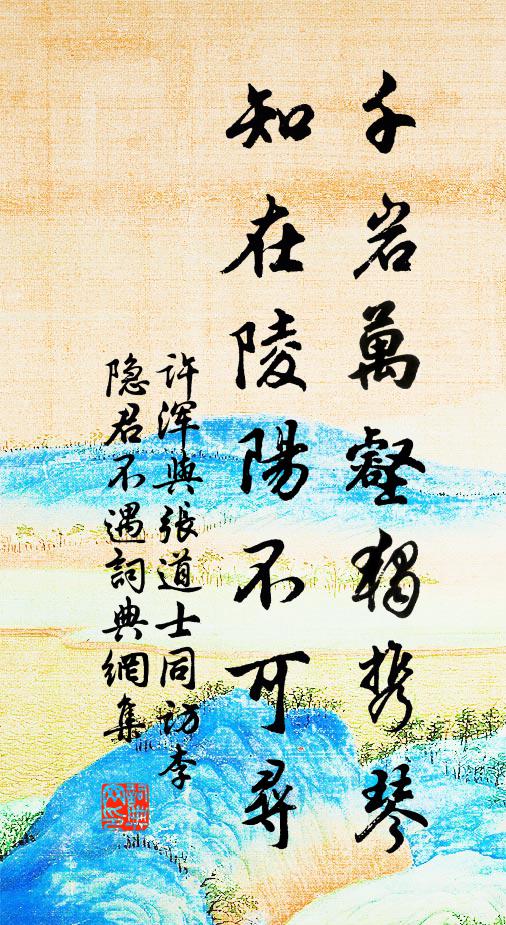 千岩萬壑獨携琴
知在陵陽不可尋
許渾與張道士同訪李
隐君不遇詞典網集